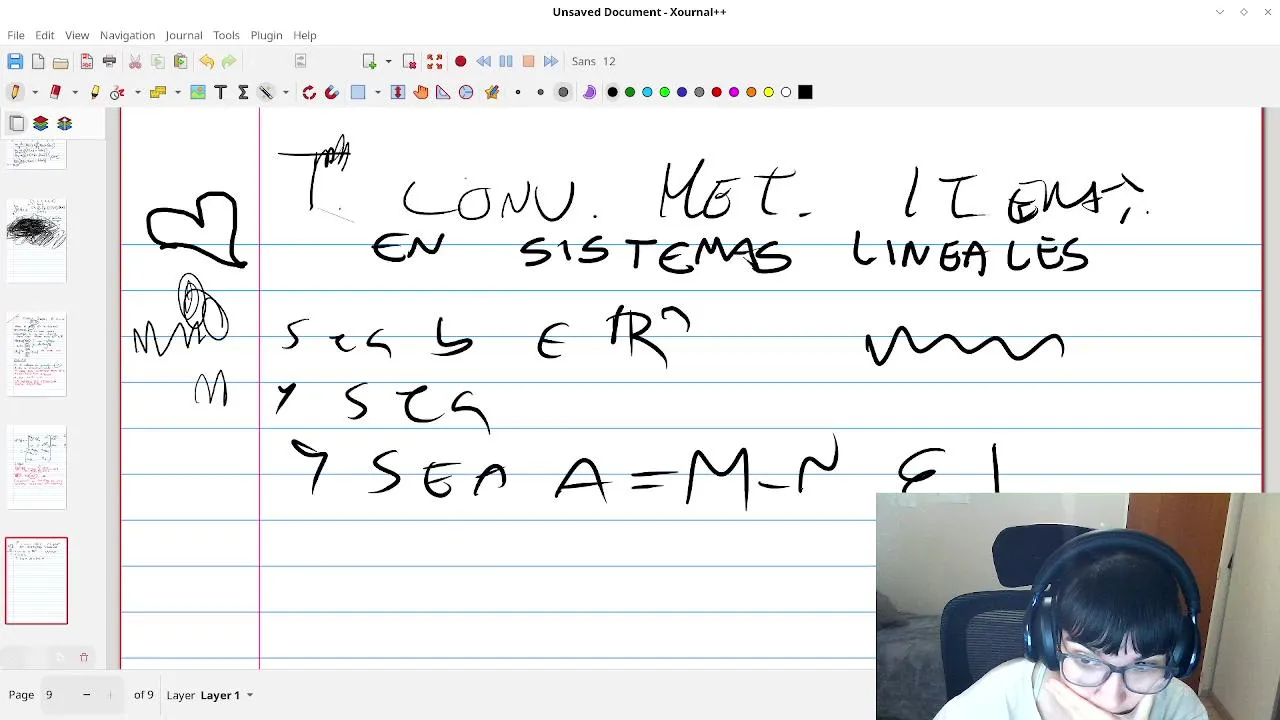 Unsaved Document - Xournal++
File Edit View Navigation Journal Tools Plugin Help
Sans 12
T. CONV. MET. ITERAT.
EN SISTEMAS LINEALES
sea b ∈ ℝⁿ
y sea
Y SEA A = M - N
Page 9 of 9 Layer Layer 1